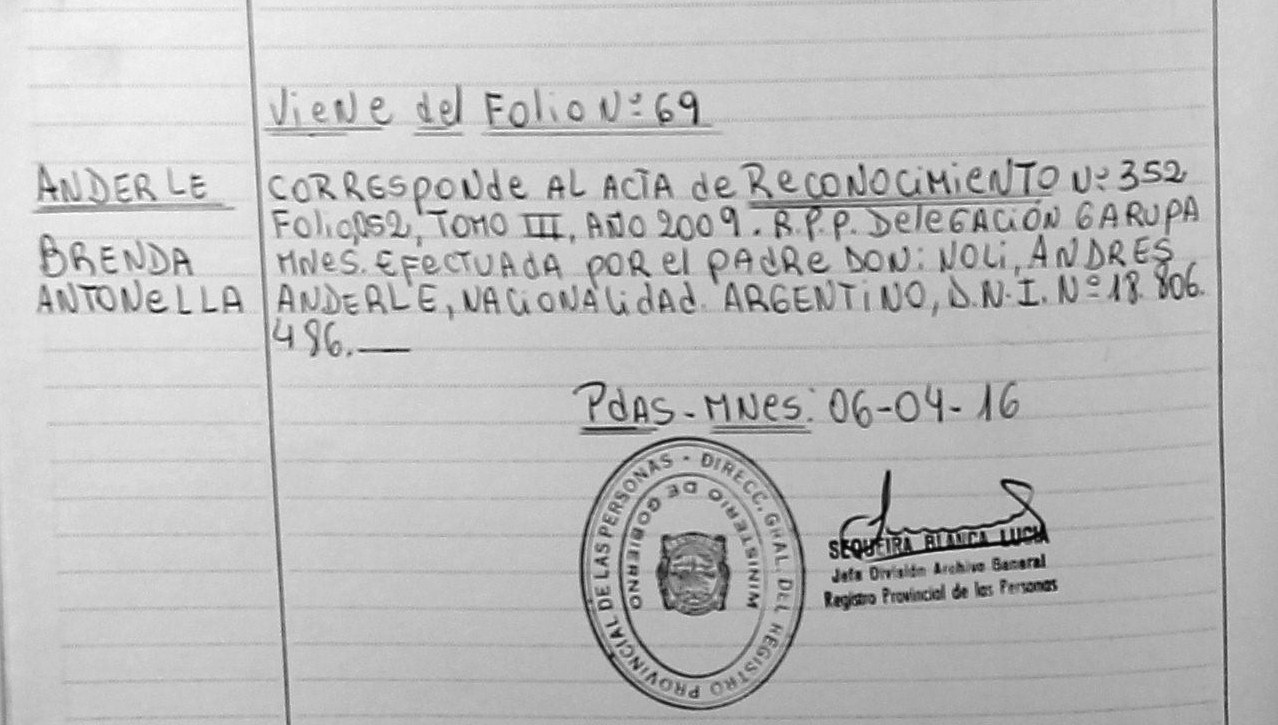 Viene del Folio Nº 69
ANDERLE
BRENDA
ANTONELLA
CORRESponde AL ACTA de ReCONOCiMieNTO Nº 352
Folio,052, TOMO III, AÑO 2009. R.P.P. DeleGACIÓN GARUPA
MNes. EFeCTUADA POR el PADRE DON: NOLi, ANDRES
ANDERLE, NACiONALidAd. ARGENTINO, D.N.I. Nº 18.806.
486.—
PdAS-MNes: 06-04-16
DIRECC. GRAL. DEL REGISTRO PROVINCIAL DE LAS PERSONAS -
MINISTERIO DE GOBIERNO
SEQUEIRA BLANCA LUCIA
Jefa División Archivo General
Registro Provincial de las Personas